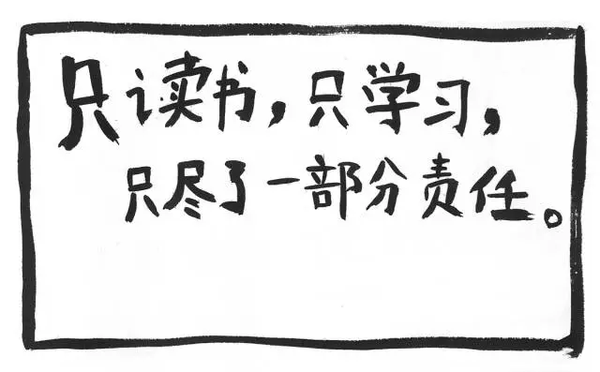 只读书，只学习，
只尽了一部分责任。